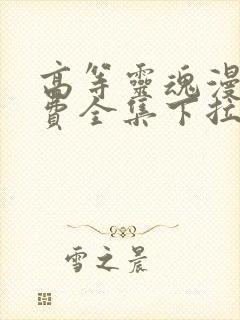 高等靈魂漫
費全集下拉
雪之晨